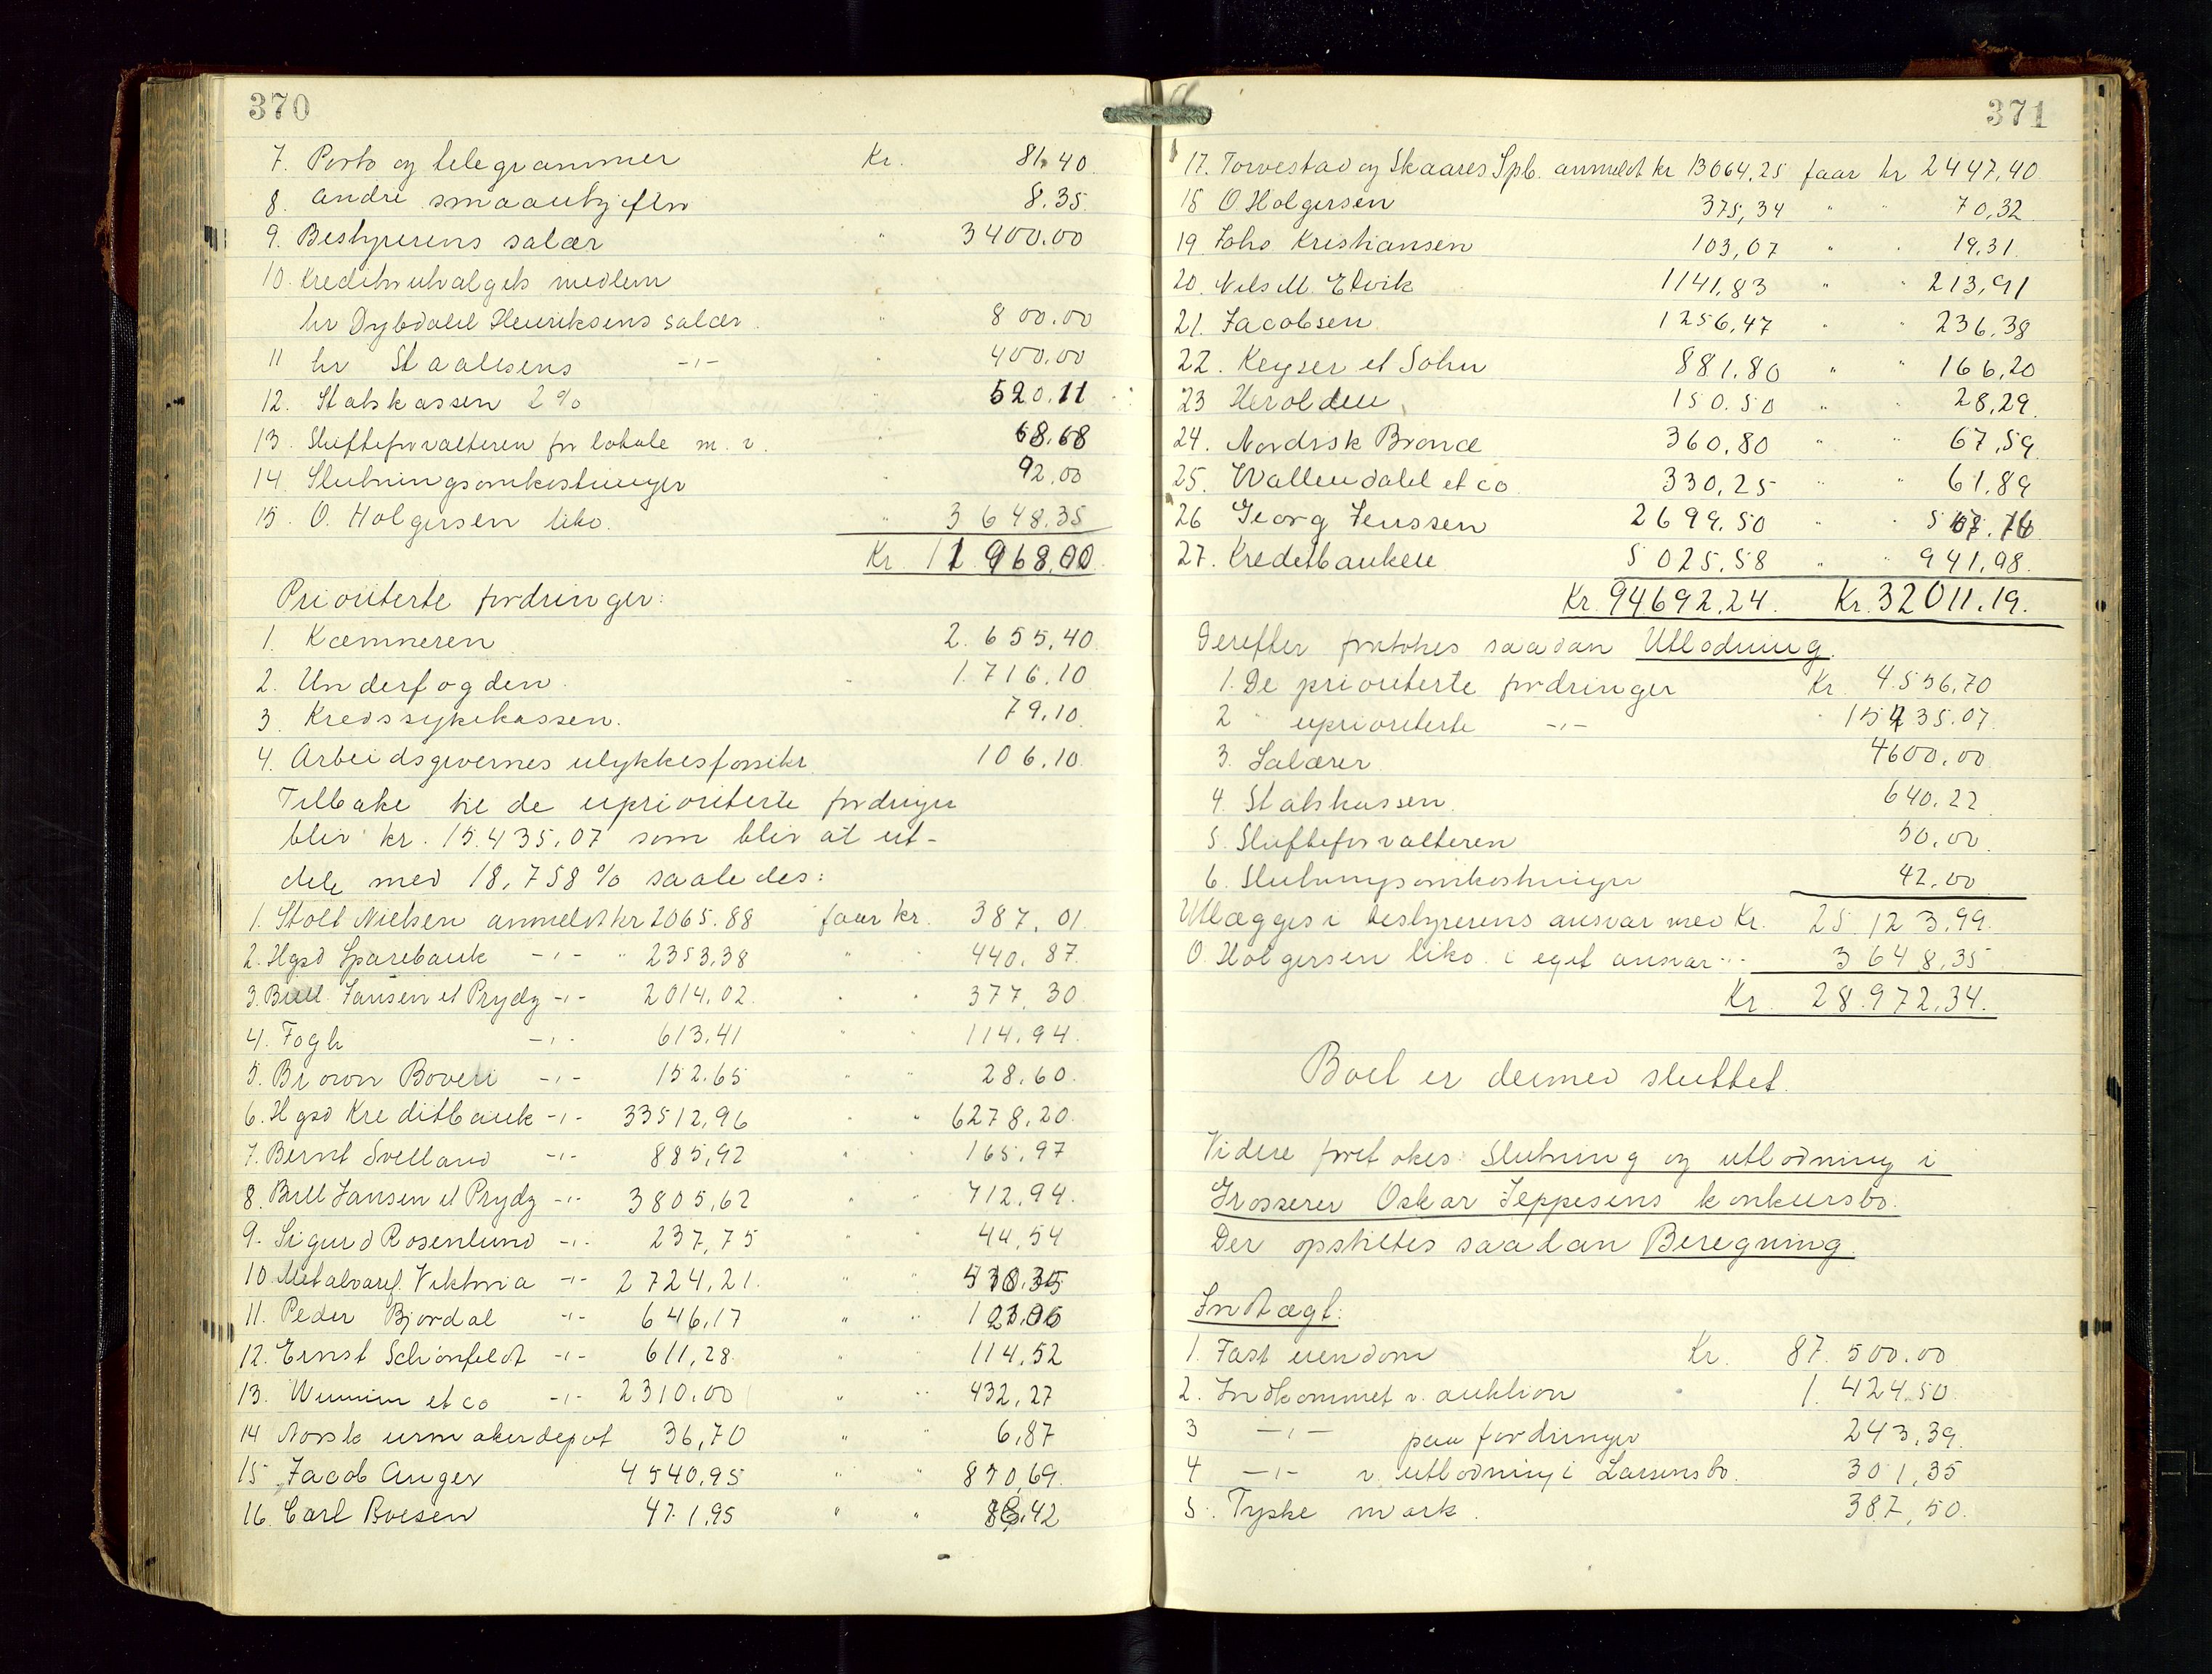 370
7. Porto og telegrammer Kr. 81.40
8. andre smaautgifter 8.35
9. Bestyrerens salær " 3400.00
10. Kreditorutvalgets medlem
hr Dybdahl Henriksens salær. " 800.00
11 hr Staalesens -"- " 400.00
12. Statskassen 2% " 520.11
13. Skifteforvalteren for lokale m.v. " 68.68
14. Slutningsomkostninger " 92.00
15. O. Holgersen liko. " 3648.35
Kr 11 968.00
Prioriterte fordringer:
1. Kæmneren 2.655,40
2. Underfogden. " 1.716.10
3. Kredssykekassen. 79,10
4. Arbeidsgivernes ulykkesforsikr. 106,10
Tilbake til de uprioriterte fordringer
blir kr. 15.435,07 som blir at ut-
dele med 18,758% saaledes:
1. Stolt Nielsen anmeldt kr 2065.88 faar kr. 387,01
2. Hgsd Sparebank -"- " 2353,38 " " 440,87
3. Bull Jansen et Prydz -"- 2014,02 " " 377,30
4. Fogh -"- 613,41 " " 114,94
5. Brown Boveri -"- 152,65 " " 28,60
6. Hgsd Kreditbank -"- 33512,96 " " 6278,20
7. Bernt Svelland -"- 885,92 " " 165,97
8. Bull Jansen et Prydz -"- 3805,62 " " 712,94
9. Sigurd Rosenlund -"- 237,75 " " 44,54
10. Metalvaref. Viktoria -"- 2724,21 " "
11. Peder Bjordal -"- 646,17 " "
12. Ernst Schönfeldt -"- 611,28 " " 114,52
13. et co -"- 2310,00 " " 432,27
14 Norsk urmakerdepot 36,70 " " 6,87
15 Jacob Anger 4540,95 " "
16. Carl Boesen 471,95 " "
371
17. Torvestad og Skaares Spb. anmeldt kr 13064,25 faar kr 2447,40
18 O Holgersen 375,34 " " 70,32
19 Johs Kristiansen 103,07 " " 19,31
20. Nils M. Elvik 1141,83 " " 213,91
21. Jacobsen 1256,47 " " 236,38
22. Keyser et Sohn 881,80 " " 166,20
23 Herolden 150.50 " " 28,29
24. Nordisk Bronce 360,80 " " 67,59
25. Wallendahl et co 330,25 " " 61,89
26 Georg Jenssen 2699,50 " "
27. Kreditbanken 5025,58 " " 941,98
Kr. 94692,24. Kr. 32011.19.
Derefter foretokes saadan Utlodning.
1. De prioriterte fordringer Kr. 4.556,70
2 " uprioriterte -"- " 15435.07
3. Salærer 4600,00
4. Statskassen 640,22
5. Skifteforvalteren 50,00
6. Slutningsomkostninger 42,00
Utlægges i bestyrerens ansvar med Kr. 25.123,99.
O. Holgersen liko. i eget ansvar " 3648,35
Kr. 28.972,34.
Boet er dermed sluttet.
Videre foretokes Slutning og utlodning i
Grosserer Oskar Jeppesens konkursbo.
Der opstiltes saadan Beregning.
Indtægt:
1. Fast eiendom Kr. 87.500.00
2. Indkommet v. auktion " 1.424.50
3 -"- paa fordringer 243,39
4 -"- v. utlodning i Larsens bo. 301,35
5. Tyske mark. 387,50.